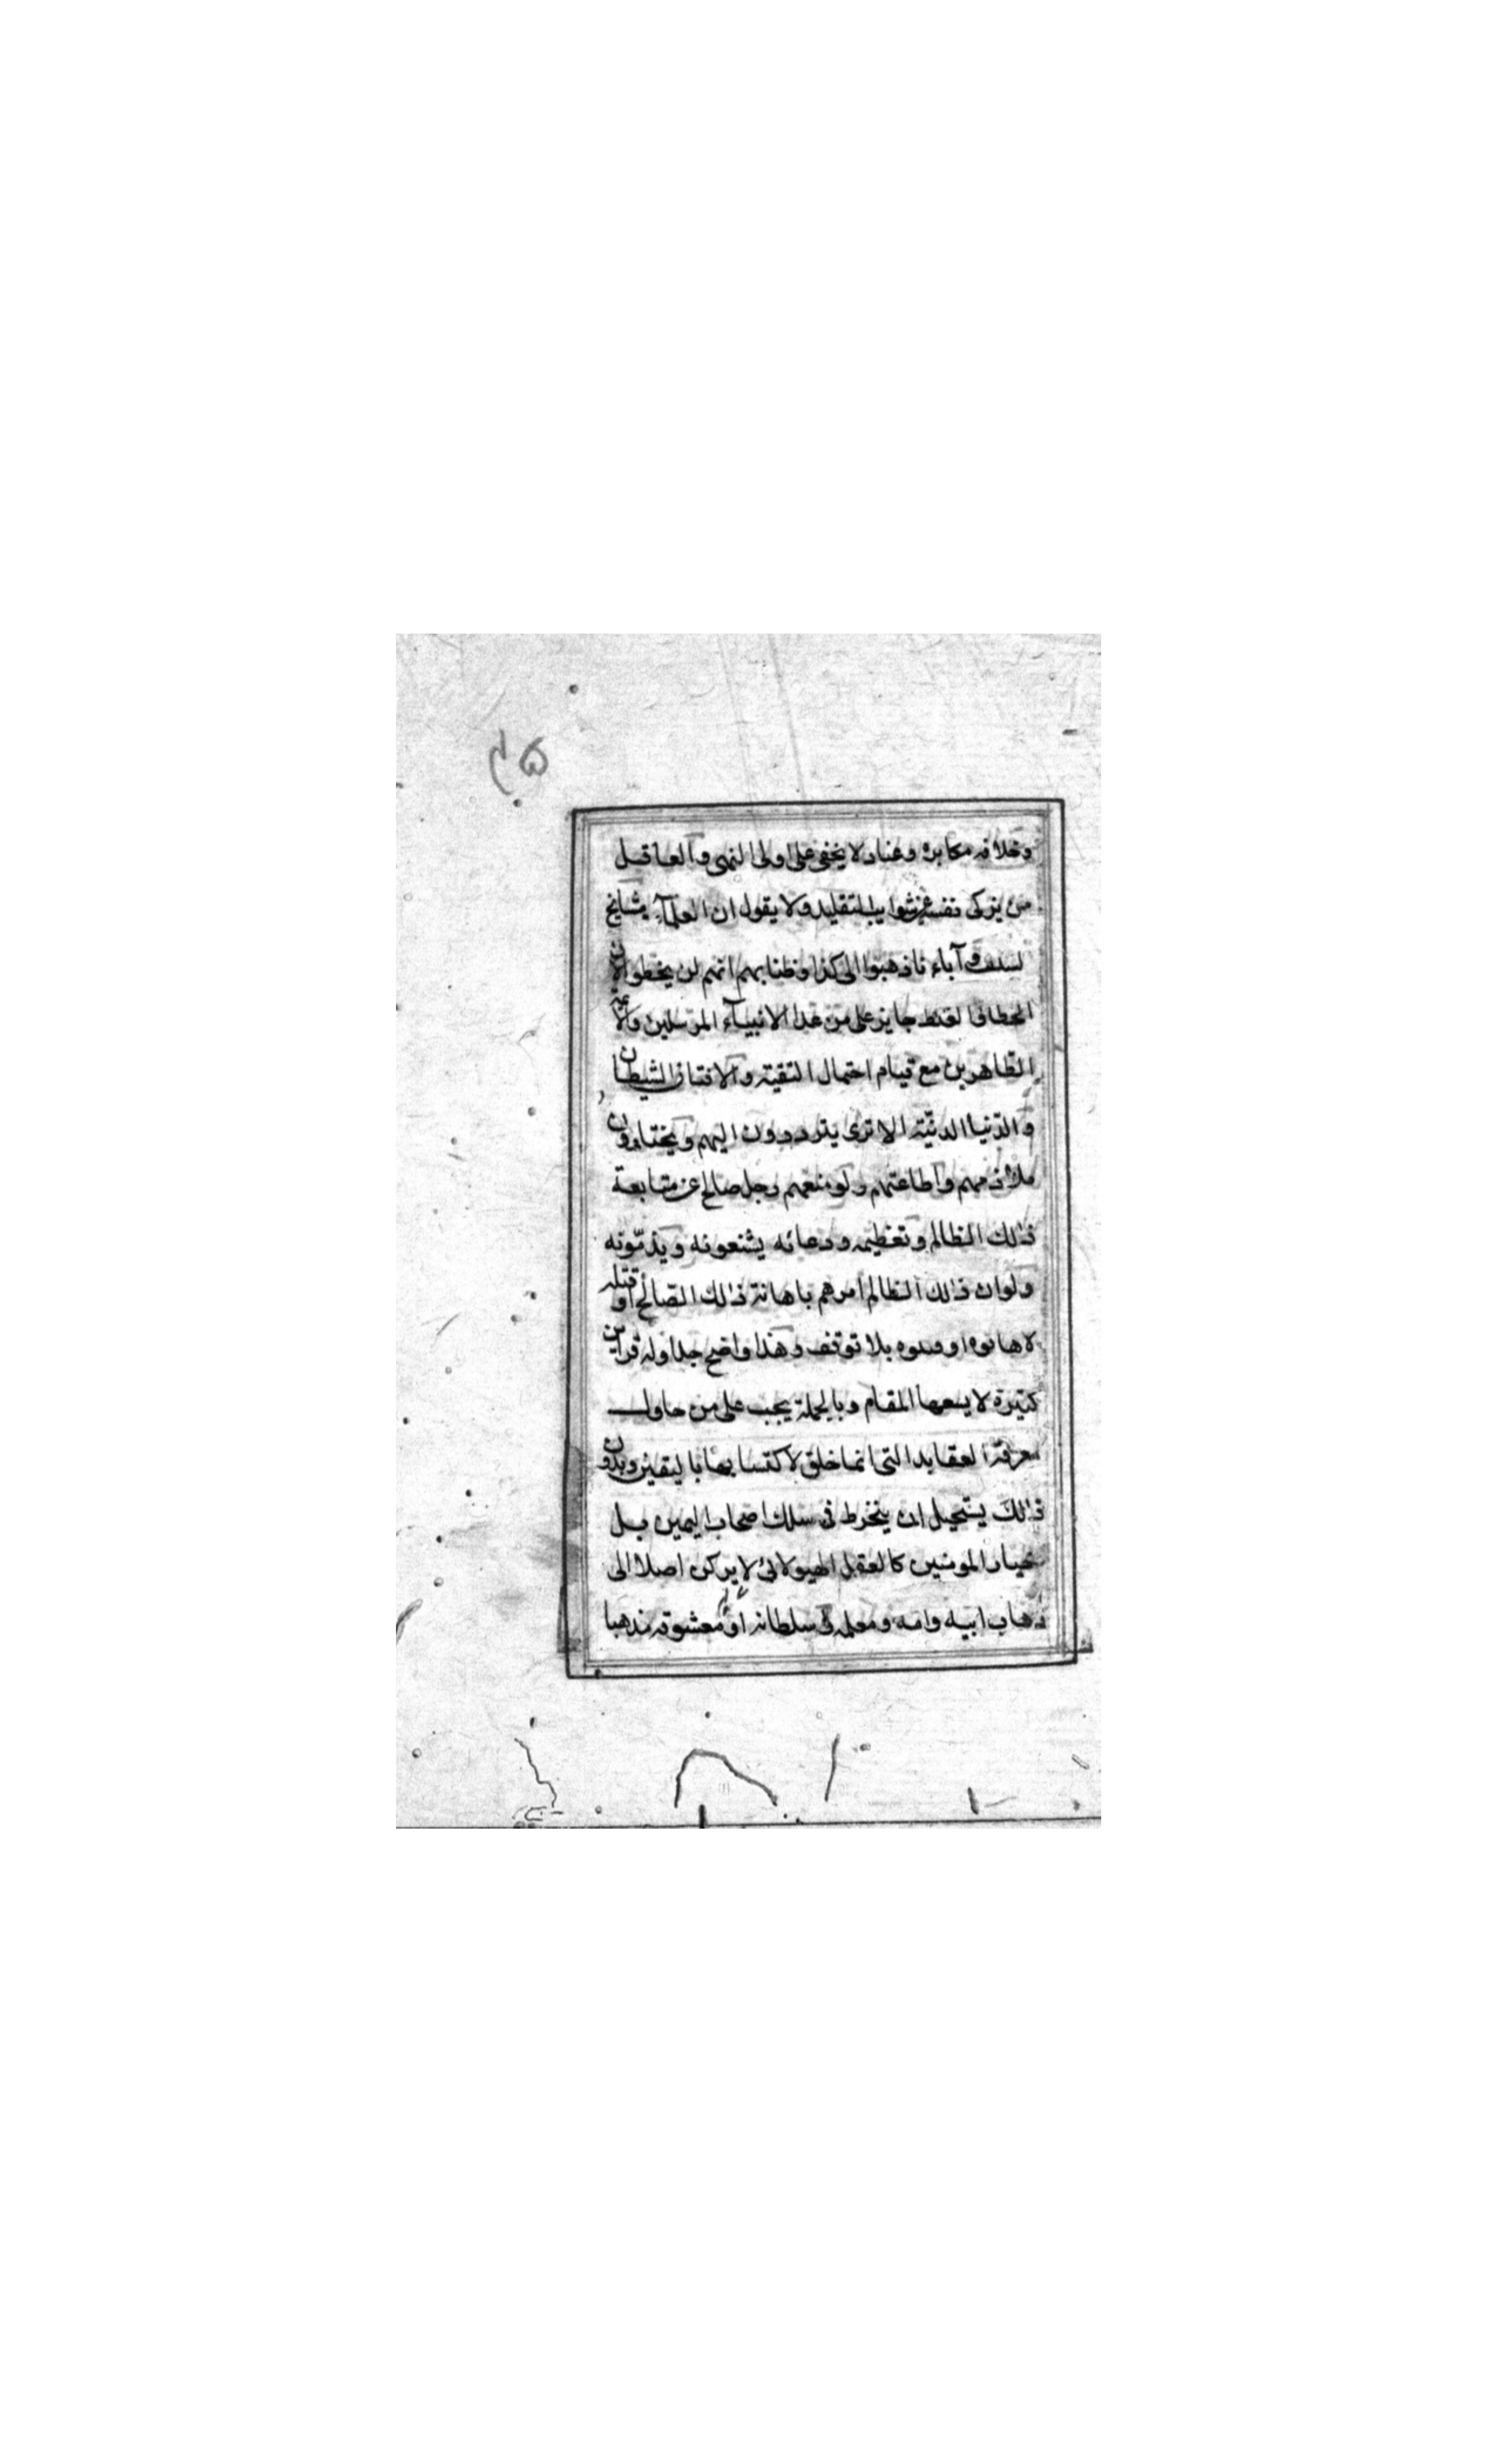 ۴۵
وخلافه مكابره وعناد لا يخفى على اولى النهى والعاقل
من يزكى نفسه عن شوايب التقليد ولا يقول ان العلمآء مشايخ
لسلف وآباءنا ذهبوا الى كذا وظنا بهم انهم لن يخطوا لان
الخطا والغلط جايز على من عدا الانبيآء المرسلين والائمة
الطاهرين مع قيام احتمال التقية والافتتان الشيطان
والدّنيا الدنيّة الا ترى يترددون اليهم ويختارون
ملازمهم واطاعتهم ولو منعهم رجل صالح عن متابعة
ذلك الظالم وتعظيمه ودعائه يشنعونه ويذمّونه
ولو ان ذلك الظالم امرهم باهانة ذلك الصّالح او قتله
لاهانوه او بلا توقف وهذا واضح جدا وله قراين
كثيرة لا يسعها المقام وبالجملة يجب على من حاول
معرفة العقايد التى انما خلق لاكتسابها باليقين وبدون
ذلك يستحيل ان ينخرط فى سلك اصحاب اليمين بل
خيار المومنين كالعقل الهيولانى لا يركن اصلا الى
ذهاب ابيه وامه ومعلمه فى سلطانه او معشوقه مذهبا